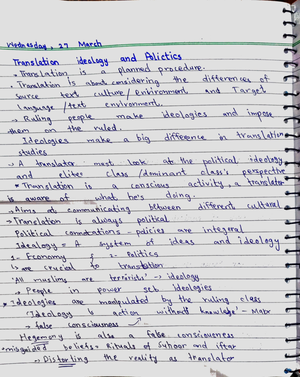 Wednesday, 27 March
Translation ideology and Polictics
• Translation is a planned procedure.
• Translation is about considering the differences of
source text culture / Enviroment and Target
language / text environment.
→ Ruling people make ideologies and impose
them on the ruled.
Ideologies make a big difference in translation
studies
→ A translator must look at the political ideology
and elites class / dominant class's perspective
• Translation is a conscious activity, a translator
is aware of what he's doing.
→ Aims at communicating between different cultural
→ Translation is always political
Political connotations - policies are integeral
Idealogy = A system of ideas and ideology
1- Economy & 2- Politics
are crucial to translation
'All muslims are terrorists' → ideology
→ People in power set ideologies
• Ideologies are manipulated by the ruling class
'Ideology is action without knowledge' - Marx
→ false consciousness
Hegemony is also a false consiousness
misguided beliefs • Rituals of Suhoor and iftar
→ Distorting the reality as translator